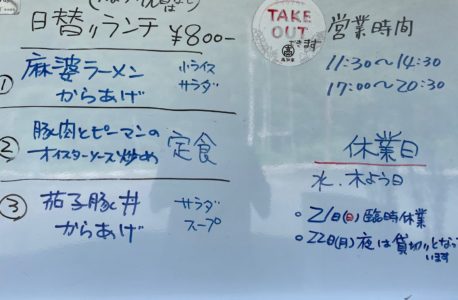 日替りランチ ¥800-
① 麻婆ラーメン 小ライス
からあげ サラダ
② 豚肉とピーマンの
オイスターソース炒め 定食
③ 茄子豚丼 サラダ
からあげ スープ
TAKE
OUT
できます
営業時間
11:30～14:30
17:00～20:30
休業日
水．木よう日
○21(日)臨時休業
○22(月)夜は貸切りとなって
います